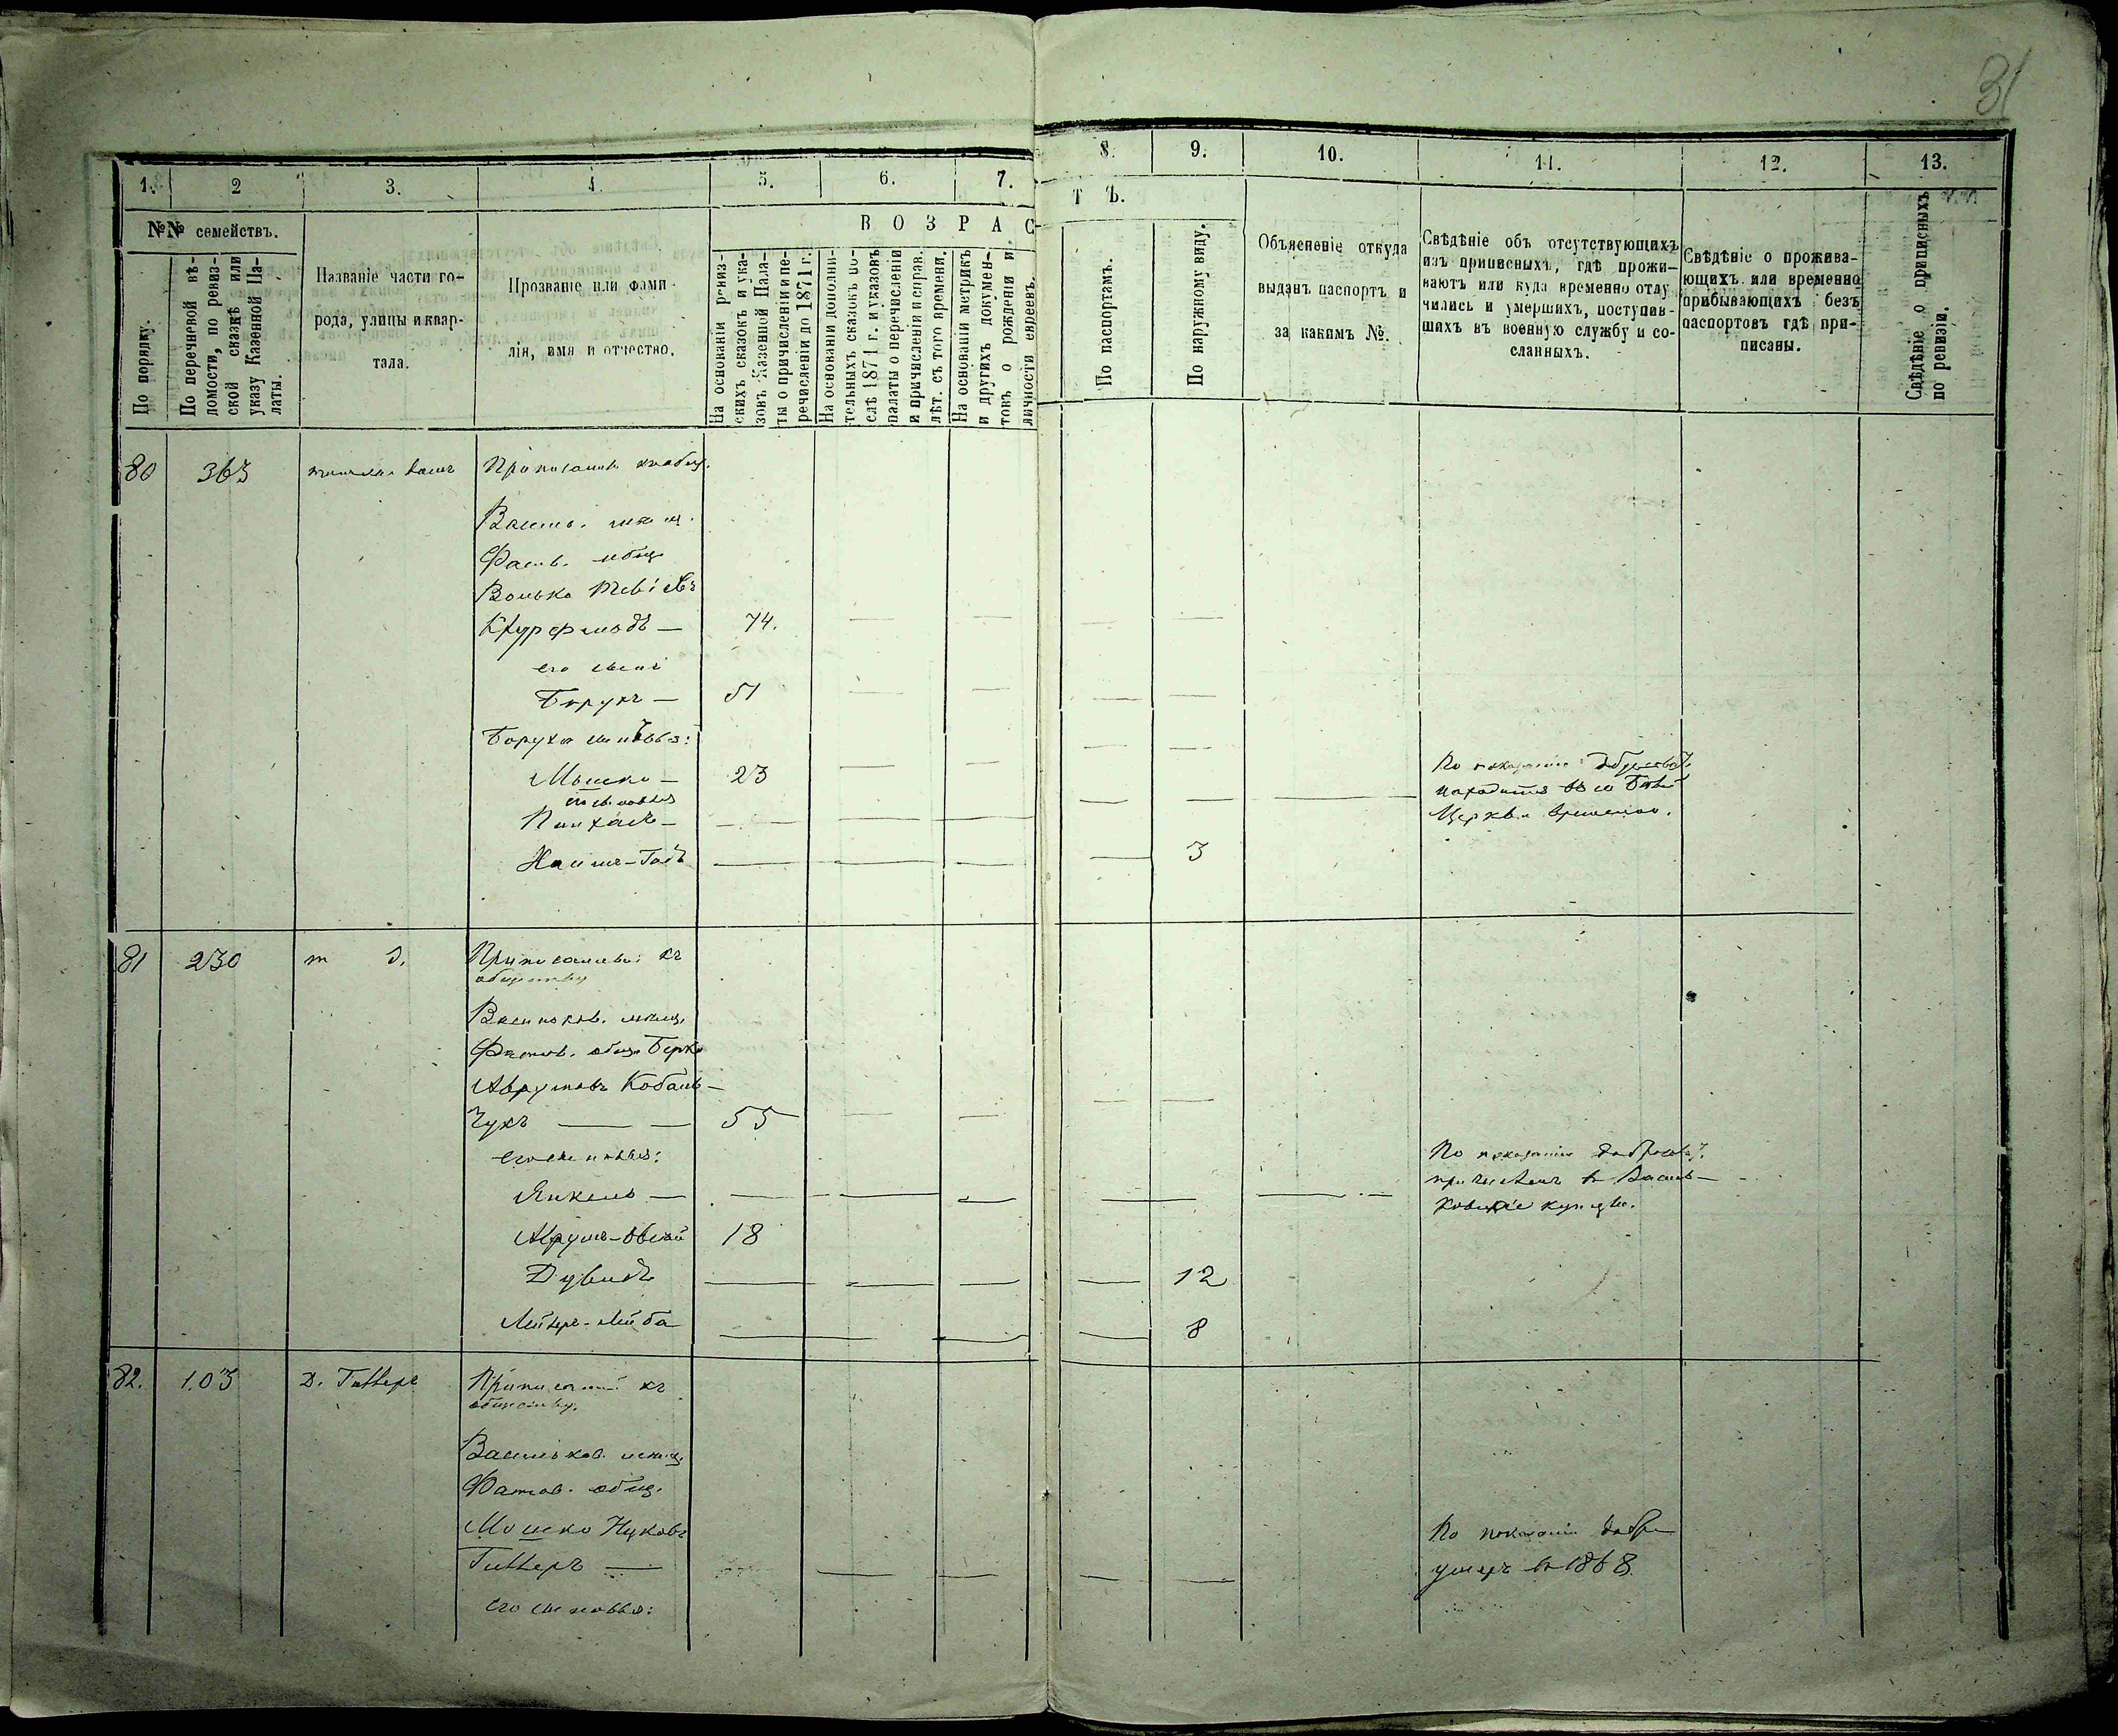 31
1. 2 3. 4. 5. 6. 7. 8. 9. 10. 11. 12. 13.
№№ семействъ.
По порядку.
По перечневой вѣ-
домости, по ревиз-
ской сказкѣ или
указу Казенной Па-
латы.
Названіе части го-
рода, улицы и квар-
тала.
Прозваніе или фами-
лія, имя и отчество.
ВОЗРАС
ТЪ.
На основаніи ревиз-
скихъ сказокъ и ука-
зовъ Казенной Пала-
ты о причисленіи и пе-
речисленіи до 1871 г.
На основаніи дополни-
тельныхъ сказокъ по-
слѣ 1871 г. и указовъ
палаты о перечисленіи
и причисленіи и справ.
лѣт. съ того времени.
На основаніи метрикъ
и другихъ докумен-
товъ о рожденіи и
личности евреевъ.
По паспортамъ.
По наружному виду.
Объясненіе откуда
выданъ паспортъ и
за какимъ №.
Свѣдѣніе объ отсутствующихъ
изъ приписныхъ, гдѣ прожи-
ваютъ или куда временно отлу
чились и умершихъ, поступив-
шихъ въ военную службу и со-
сланныхъ.
Свѣдѣніе о прожива-
ющихъ или временно
прибывающихъ безъ
паспортовъ гдѣ при-
писаны.
Свѣдѣніе о приписныхъ
по ревизіи.
80 363
Васил. мѣщ.
Фаст. общ.
Волько
74.
его сынъ
Борухъ — 51
Боруха сыновья:
Мошко — 23
его сыновья
Пинхасъ —
Хаимъ-Гадъ 3
По показанію
находится въ Бѣлой
Церкви временно.
81 230 т д.
Приписанный къ
обществу
Васильков. мѣщ.
Фастов. общ. Берко
Аврумовъ Кобаль-
чукъ — 55
его сыновья:
Янкель —
По показанію
причисленъ въ Василь-
ковскіе купцы.
Аврумъ- 18
Дувидъ 12
Лейба 8
82. 103 Д. Гитеръ
Приписанный къ
обществу.
Васильков. мѣщ.
Фастов. общ.
Мошко
Гитеръ —
По показанію
умеръ въ 1868
его сыновья: